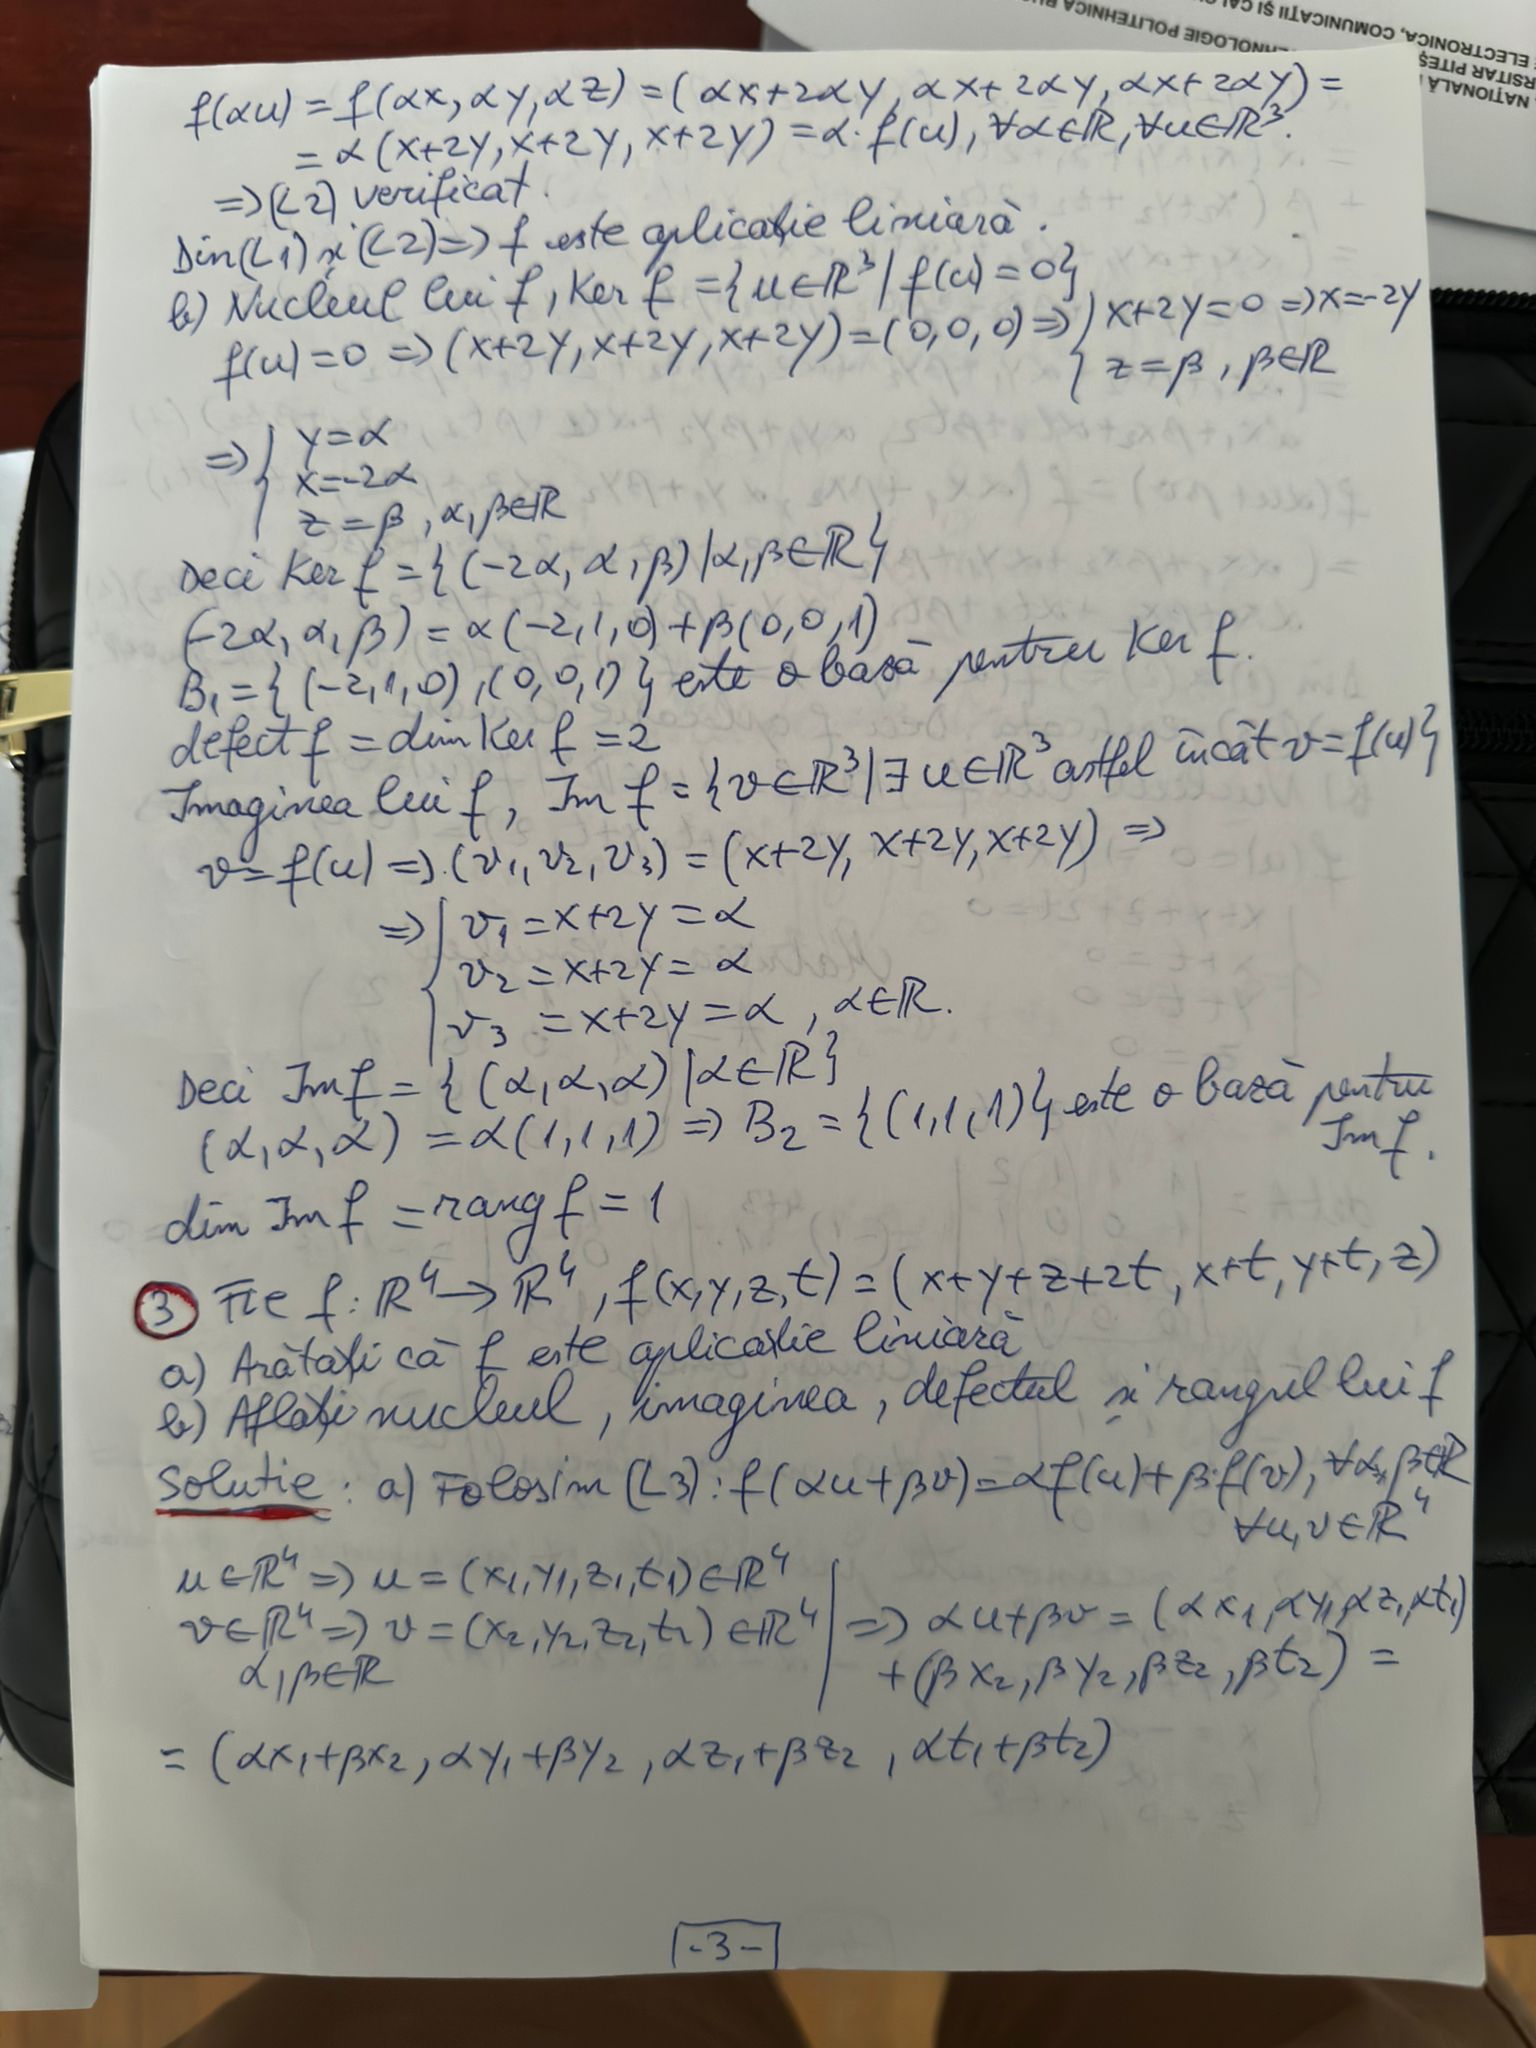 NAȚIONALĂ
RSITAR PITEȘ
ELECTRONICA, COMUNICAȚII ȘI CAL
HNOLOGIE POLITEHNICA BU
f(αu) = f(αx, αy, αz) = (αx+2αy, αx+2αy, αx+2αy) =
= α(x+2y, x+2y, x+2y) = α·f(u), ∀α∈ℝ, ∀u∈ℝ³.
⇒(L2) verificat.
Din(L1) și (L2)⇒ f este aplicație liniară.
b) Nucleul lui f, Ker f = {u∈ℝ³ | f(u)=0}
f(u)=0 ⇒ (x+2y, x+2y, x+2y)=(0,0,0) ⇒ { x+2y=0 ⇒ x=-2y
z=β, β∈ℝ
⇒ { y=α
x=-2α
z=β, α,β∈ℝ
Deci Ker f = {(-2α, α, β) | α,β∈ℝ}
(-2α, α, β) = α(-2,1,0)+β(0,0,1)
B₁={(-2,1,0),(0,0,1)} este o bază pentru Ker f.
defect f = dim Ker f = 2
Imaginea lui f, Im f = {v∈ℝ³ | ∃ u∈ℝ³ astfel încât v=f(u)}
v=f(u) ⇒ (v₁,v₂,v₃) = (x+2y, x+2y, x+2y) ⇒
⇒ { v₁=x+2y=α
v₂=x+2y=α
v₃=x+2y=α, α∈ℝ.
Deci Im f = {(α,α,α) | α∈ℝ}
(α,α,α) = α(1,1,1) ⇒ B₂={(1,1,1)} este o bază pentru
Im f.
dim Im f = rang f = 1
3 Fie f: ℝ⁴→ℝ⁴, f(x,y,z,t)=(x+y+z+2t, x+t, y+t, z)
a) Arătați că f este aplicație liniară
b) Aflați nucleul, imaginea, defectul și rangul lui f
Solutie: a) Folosim (L3): f(αu+βv)=αf(u)+β·f(v), ∀α,β∈ℝ
∀u,v∈ℝ⁴
u∈ℝ⁴ ⇒ u=(x₁,y₁,z₁,t₁)∈ℝ⁴
v∈ℝ⁴ ⇒ v=(x₂,y₂,z₂,t₂)∈ℝ⁴ | ⇒ αu+βv = (αx₁,αy₁,αz₁,αt₁)
α,β∈ℝ +(βx₂,βy₂,βz₂,βt₂) =
= (αx₁+βx₂, αy₁+βy₂, αz₁+βz₂, αt₁+βt₂)
-3-